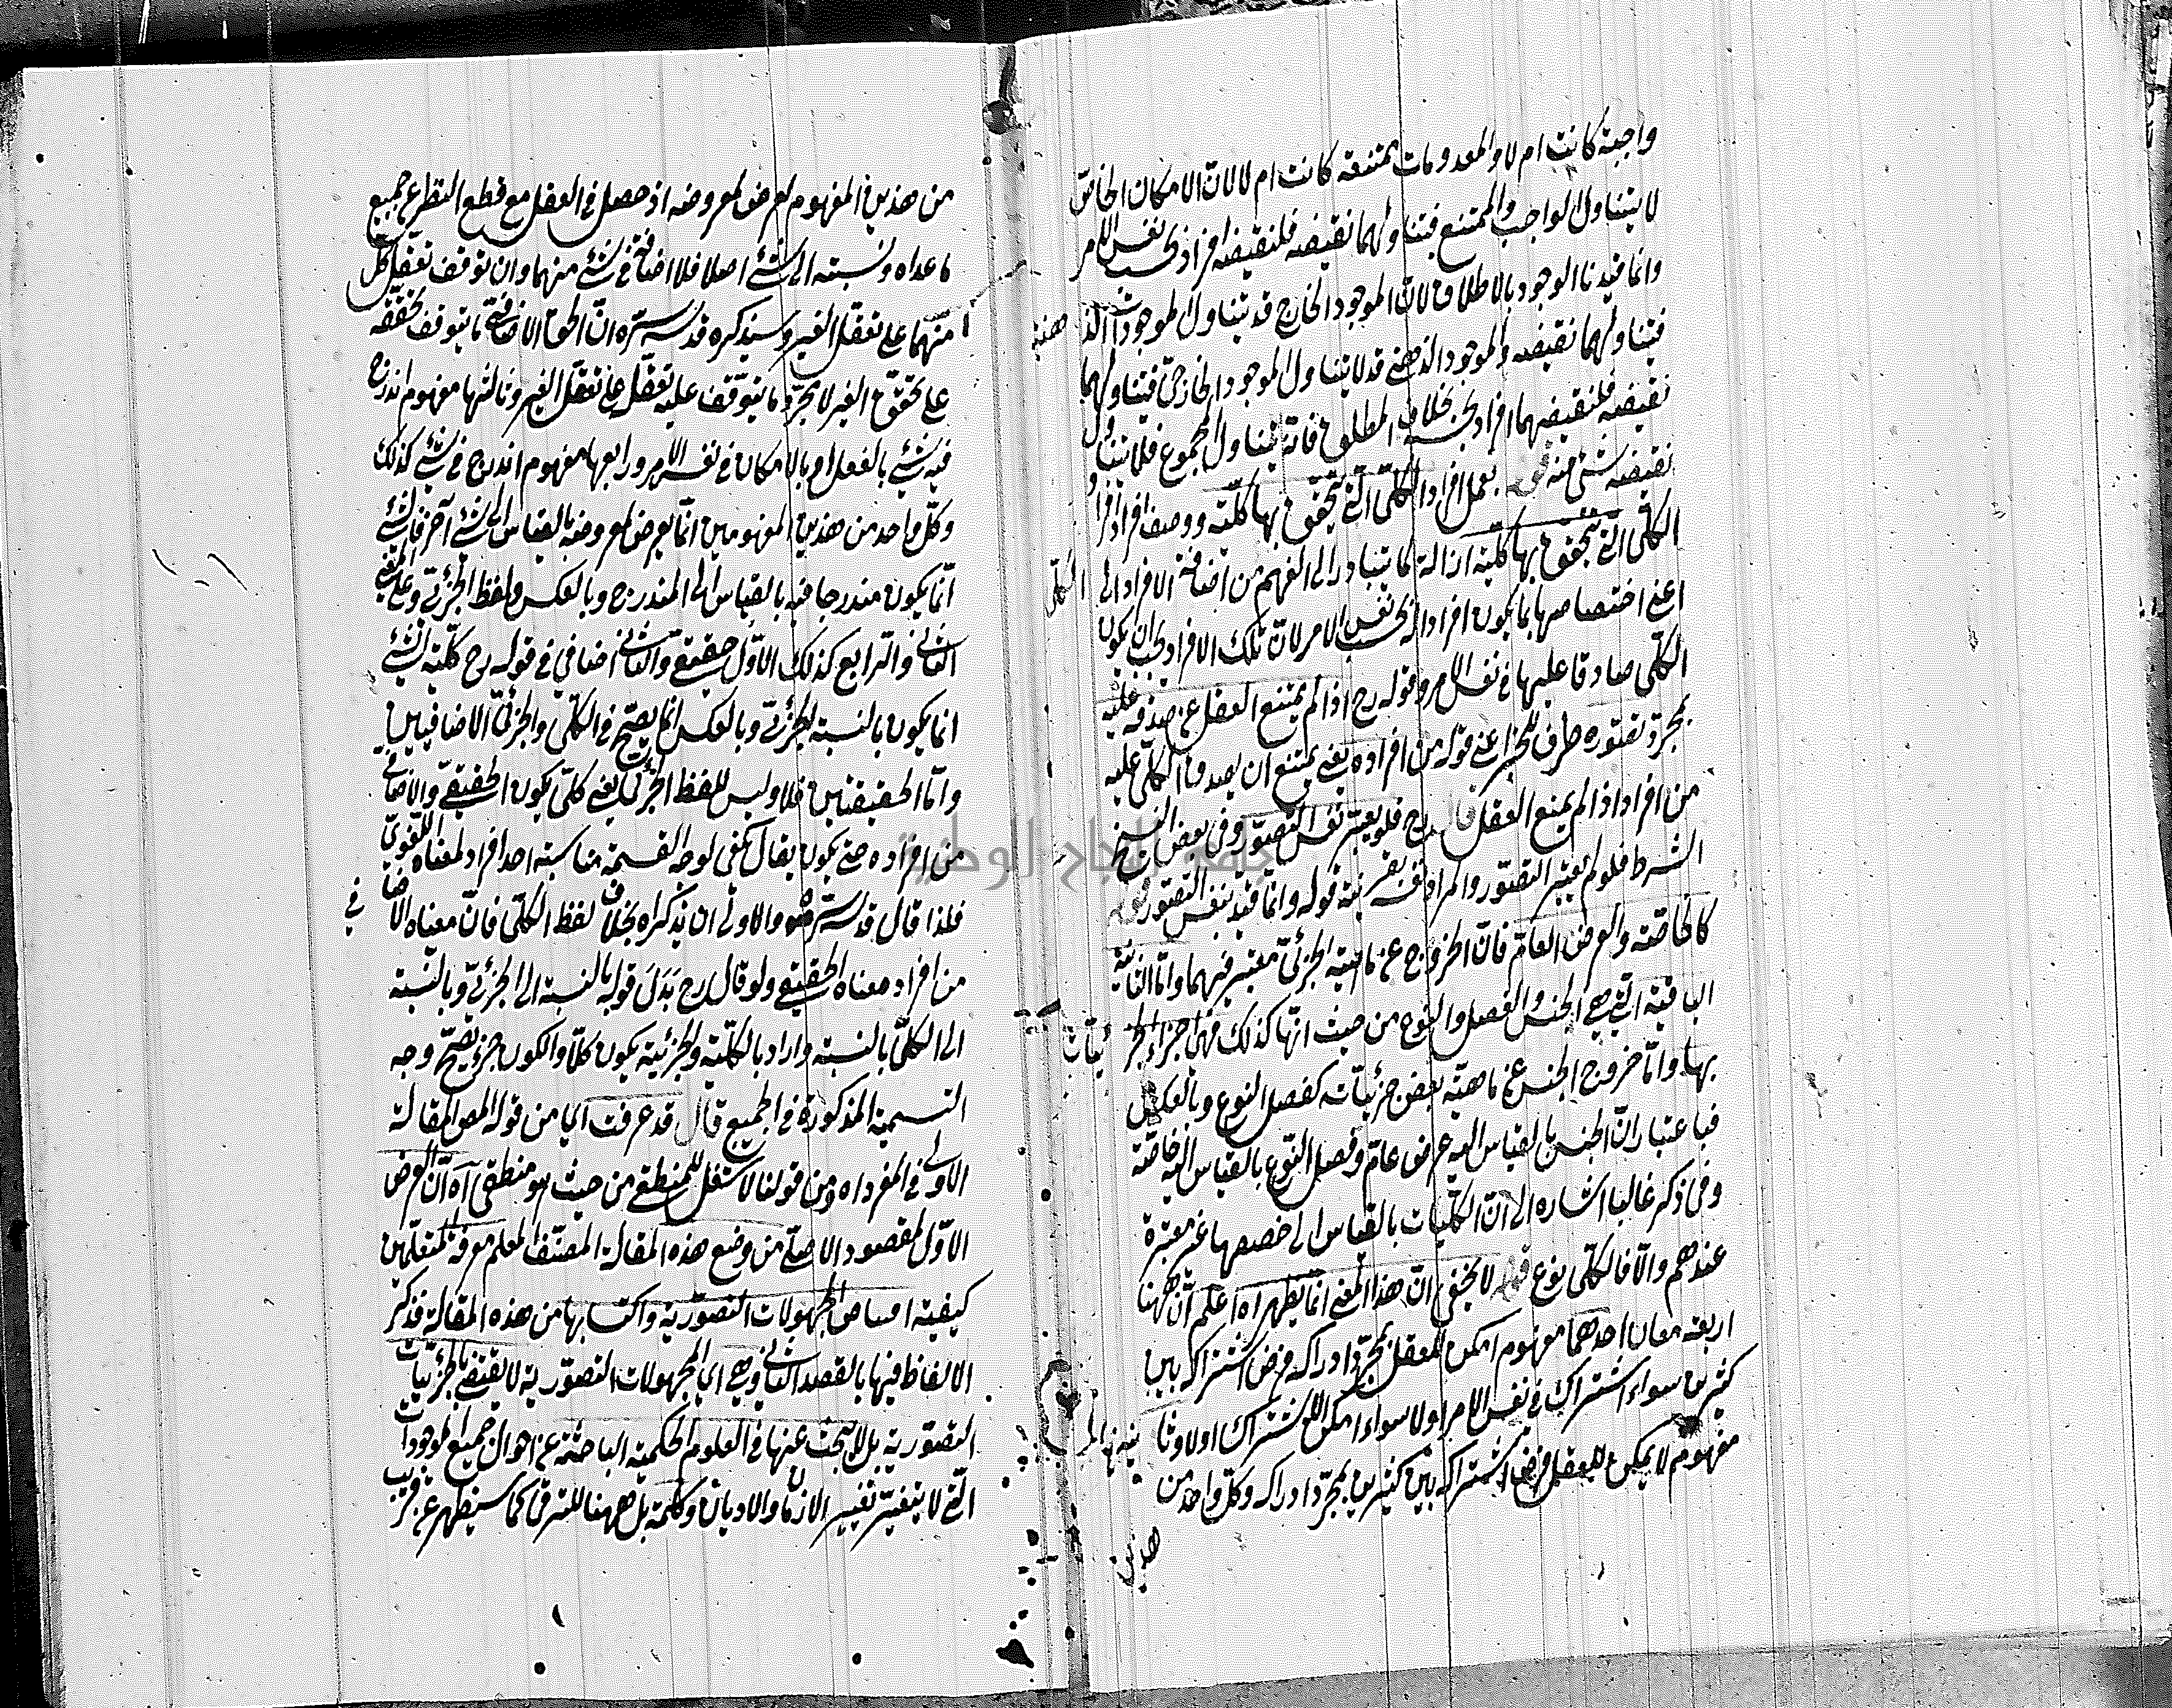 واجبة كانت ام لا والمعدومات ممتنعة كانت ام لا لان الامكان الخاص
لا يتناول الواجب والممتنع فيتناولهما نقيضه فلنقيضه افراد بحسب نفس الامر
وانما قيدنا الوجود بالاطلاق لان الموجود الخارج قد يتناول الموجودات الذهنية
فيتناولهما نقيضه والموجود الذهني قد لا يتناول الموجود الخارجي فيتناولهما
نقيضه فلنقيضهما افراد بحسبه بخلاف المطلق فانه يتناول المجموع فلا يتناول
نقيضه شئ منه قوله بعمل افراد الكلي التي يتحقق بها كليته ووصف افراد
الكلي التي يتحقق بها كليته ازالة لما يتبادر الى الفهم من اضافة الافراد الى الكلي
اعني اختصاصها بما يكون افرادا له بحسب نفس الامر لان تلك الافراد يجب ان يكون
الكلي صادقا عليها في نفس الامر وقوله رح اذا لم يمتنع العقل عن صدقه عليه
بمجرد تصوره ظرف للجزاء اعني قوله من افراده يعني يمتنع ان يصدق الكلي عليه
من افراد اذا لم يمنع العقل قال رح فلو يعتبر نفس التصور وفي بعض النسخ
الشرط فلو لم يعتبر التصور والمراد نفسه بقرينة قوله وانما قيد بنفس التصور قوله
كالخاصة والعرض العام فان الخروج عن ماهية الجزئي معتبر فيهما واما الثانية
الباقية التي هي الجنس والفصل والنوع من حيث انها كذلك فهي اجزاء لجزئيات
بها واما خروج الجنس عن ماهية بعض جزئياته كفصل النوع وبالعكس
فباعتبار ان الجنس بالقياس اليه عرض عام وفصل النوع بالقياس اليه خاصة
وفي ذكر غالبا اشارة الى ان الكليات بالقياس الى حصصها غير معتبرة
عندهم والا فالكلي نوع قوله لا يخفى ان هذا المعنى انما يظهر اه اعلم ان ههنا
اربعة معان احدهما مفهوم امكن للعقل بمجرد ادراكه فرض اشتراكه بين
كثيرين سواء اشتراك في نفس الامر اولا سواء امكن الاشتراك اولا وثانيها
مفهوم لا يمكن للعقل فرض اشتراكه بين كثيرين بمجرد ادراكه وكل واحد من
هذين
من هذين المفهوم لعرض لمعروضه اذ حصل في العقل مع قطع النظر عن جميع
ما عداه ونسبته الى شئ اصلا فلا اضافة في شئ منهما وان توقف تعقل كل
منهما على تعقل الغير وسيذكره قدس سره ان الحق الاضافي ما يتوقف تحققه
على تحقق الغير لا مجرد ما يتوقف عليه تعقله على تعقل الغير وثالثها مفهوم اندرج
فيه شئ بالفعل او بالامكان في نفس الامر ورابعها مفهوم اندرج في شئ كذلك
وكل واحد من هذين المفهومين انما يعرض لمعروضه بالقياس الى شئ آخر فان الشئ
انما يكون مندرجا فيه بالقياس الى المندرج وبالعكس ولفظ الجزئي وعلى المعنى
الثاني والرابع كذلك الاول حقيقي والثاني اضافي في قوله رح كلية الشئ
انما يكون بالنسبة لجزئي وبالعكس انما يصح في الكلي والجزئي الاضافيين
واما الحقيقتين فلا وليس للفظ الجزئي يعني كلي يكون الحقيقي والاضافي
من افراده حتى يكون يقال يكفي لوجه القسمة مناسبة احد افراد لمعناه اللغوي
فلذا قال قدس سره والاولى ان يذكراه بخلاف لفظ الكلي فان معناه الاضافي
من افراد معناه الحقيقي ولو قال رح بدل قوله بالنسبة الى الجزئي وبالنسبة
الى الكلي بالنسبة واراد بالكلية والجزئية يكون كلا والكون جزء يصح وجه
التسمية المذكورة في الجميع قال قد عرفت اي من قوله المص المقالة
الاولى في المفرد اه ومن قولنا لا شغل للمنطقي من حيث هو منطقي اه ان الغرض
الاول المقصود الاصلي من وضع هذه المقالة المصنف المعلم معرفة المتعلمين
كيفية اقتناص المجهولات التصورية واكتسابها من هذه المقالة فذكر
الالفاظ فيها بالقصد الثاني وهي اي المجهولات التصورية لا يقتضي بالجزئيات
التصورية بل لا يبحث عنها في العلوم الحكمية الباحثة عن احوال جميع الموجودات
التي لا يتغير بتغيير الازمان والاديان وكلمة بل ههنا للترقي كما سيظهر عن قريب